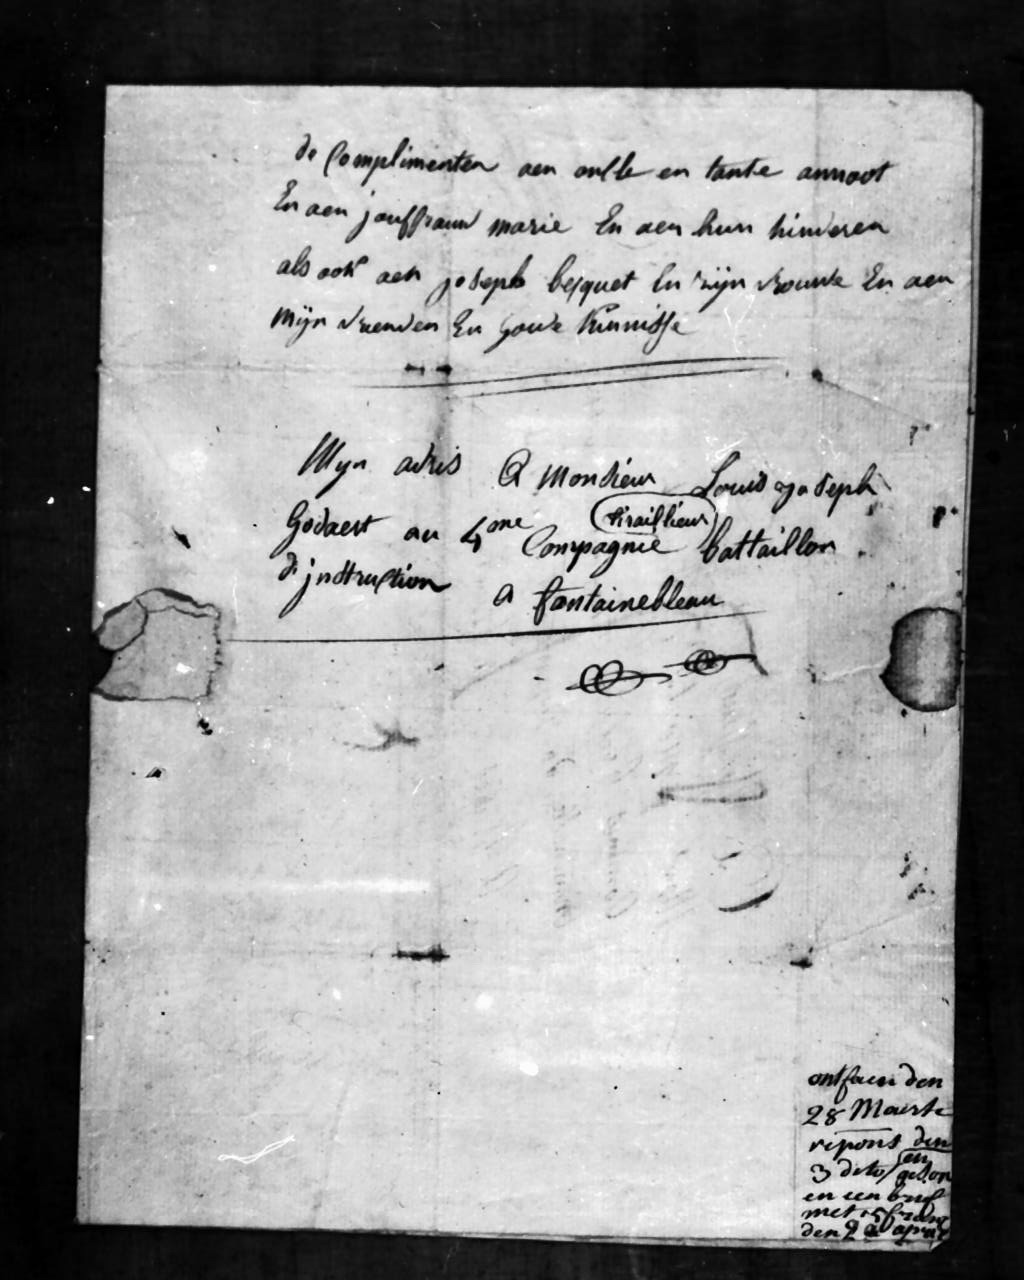 de Complimenten aen onkle en tante annoot
En aen jouffrauw marie En aen hun kinderen
als ook aen joseph becquet En zijn vrouwe En aen
Mijn vrienden En goude kinnisse
Myn adris A Monsiéur Louis Joseph
Godaert au 4me Compagnie tiraillieur battaillon
d'jnstruction a fontainebleau
ontfaen den
28 Maerte
repons den
3 dito en
en een brief
met 15 fran
den 22 april